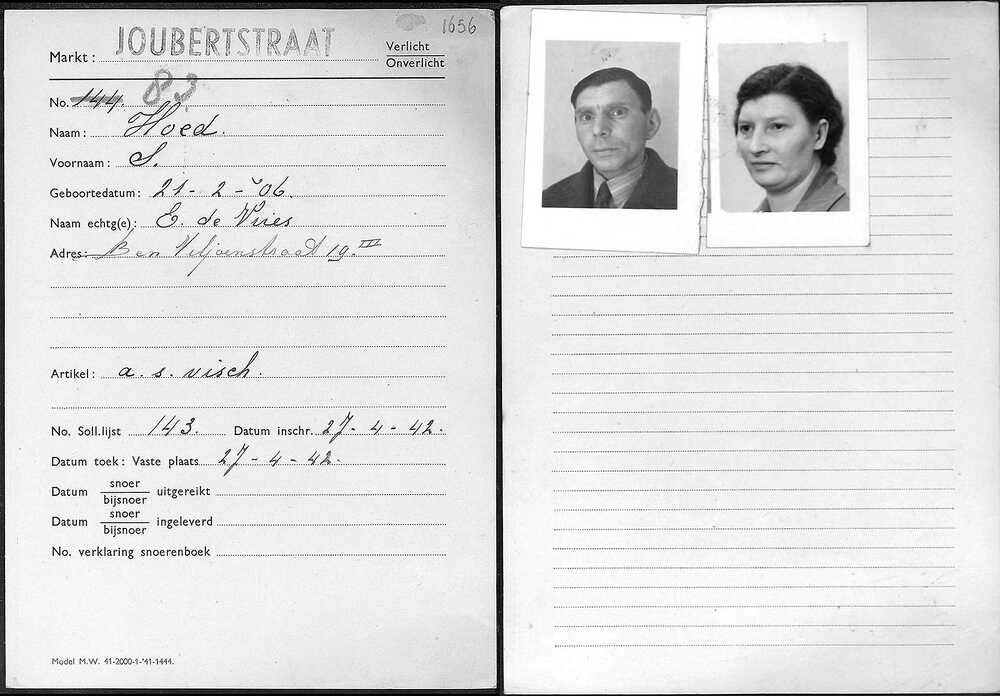 1656
Markt: JOUBERTSTRAAT Verlicht
Onverlicht
No. 144. 83
Naam: Hoed.
Voornaam: S.
Geboortedatum: 21-2-'06.
Naam echtg(e): E. de Vries
Adres: Ben Viljoenstraat 19 III
Artikel: a. s. visch.
No. Soll.lijst 143. Datum inschr. 27-4-42.
Datum toek: Vaste plaats 27-4-42.
Datum snoer
bijsnoer uitgereikt
Datum snoer
bijsnoer ingeleverd
No. verklaring snoerenboek
Model M.W. 41-2000-1-'41-1444.